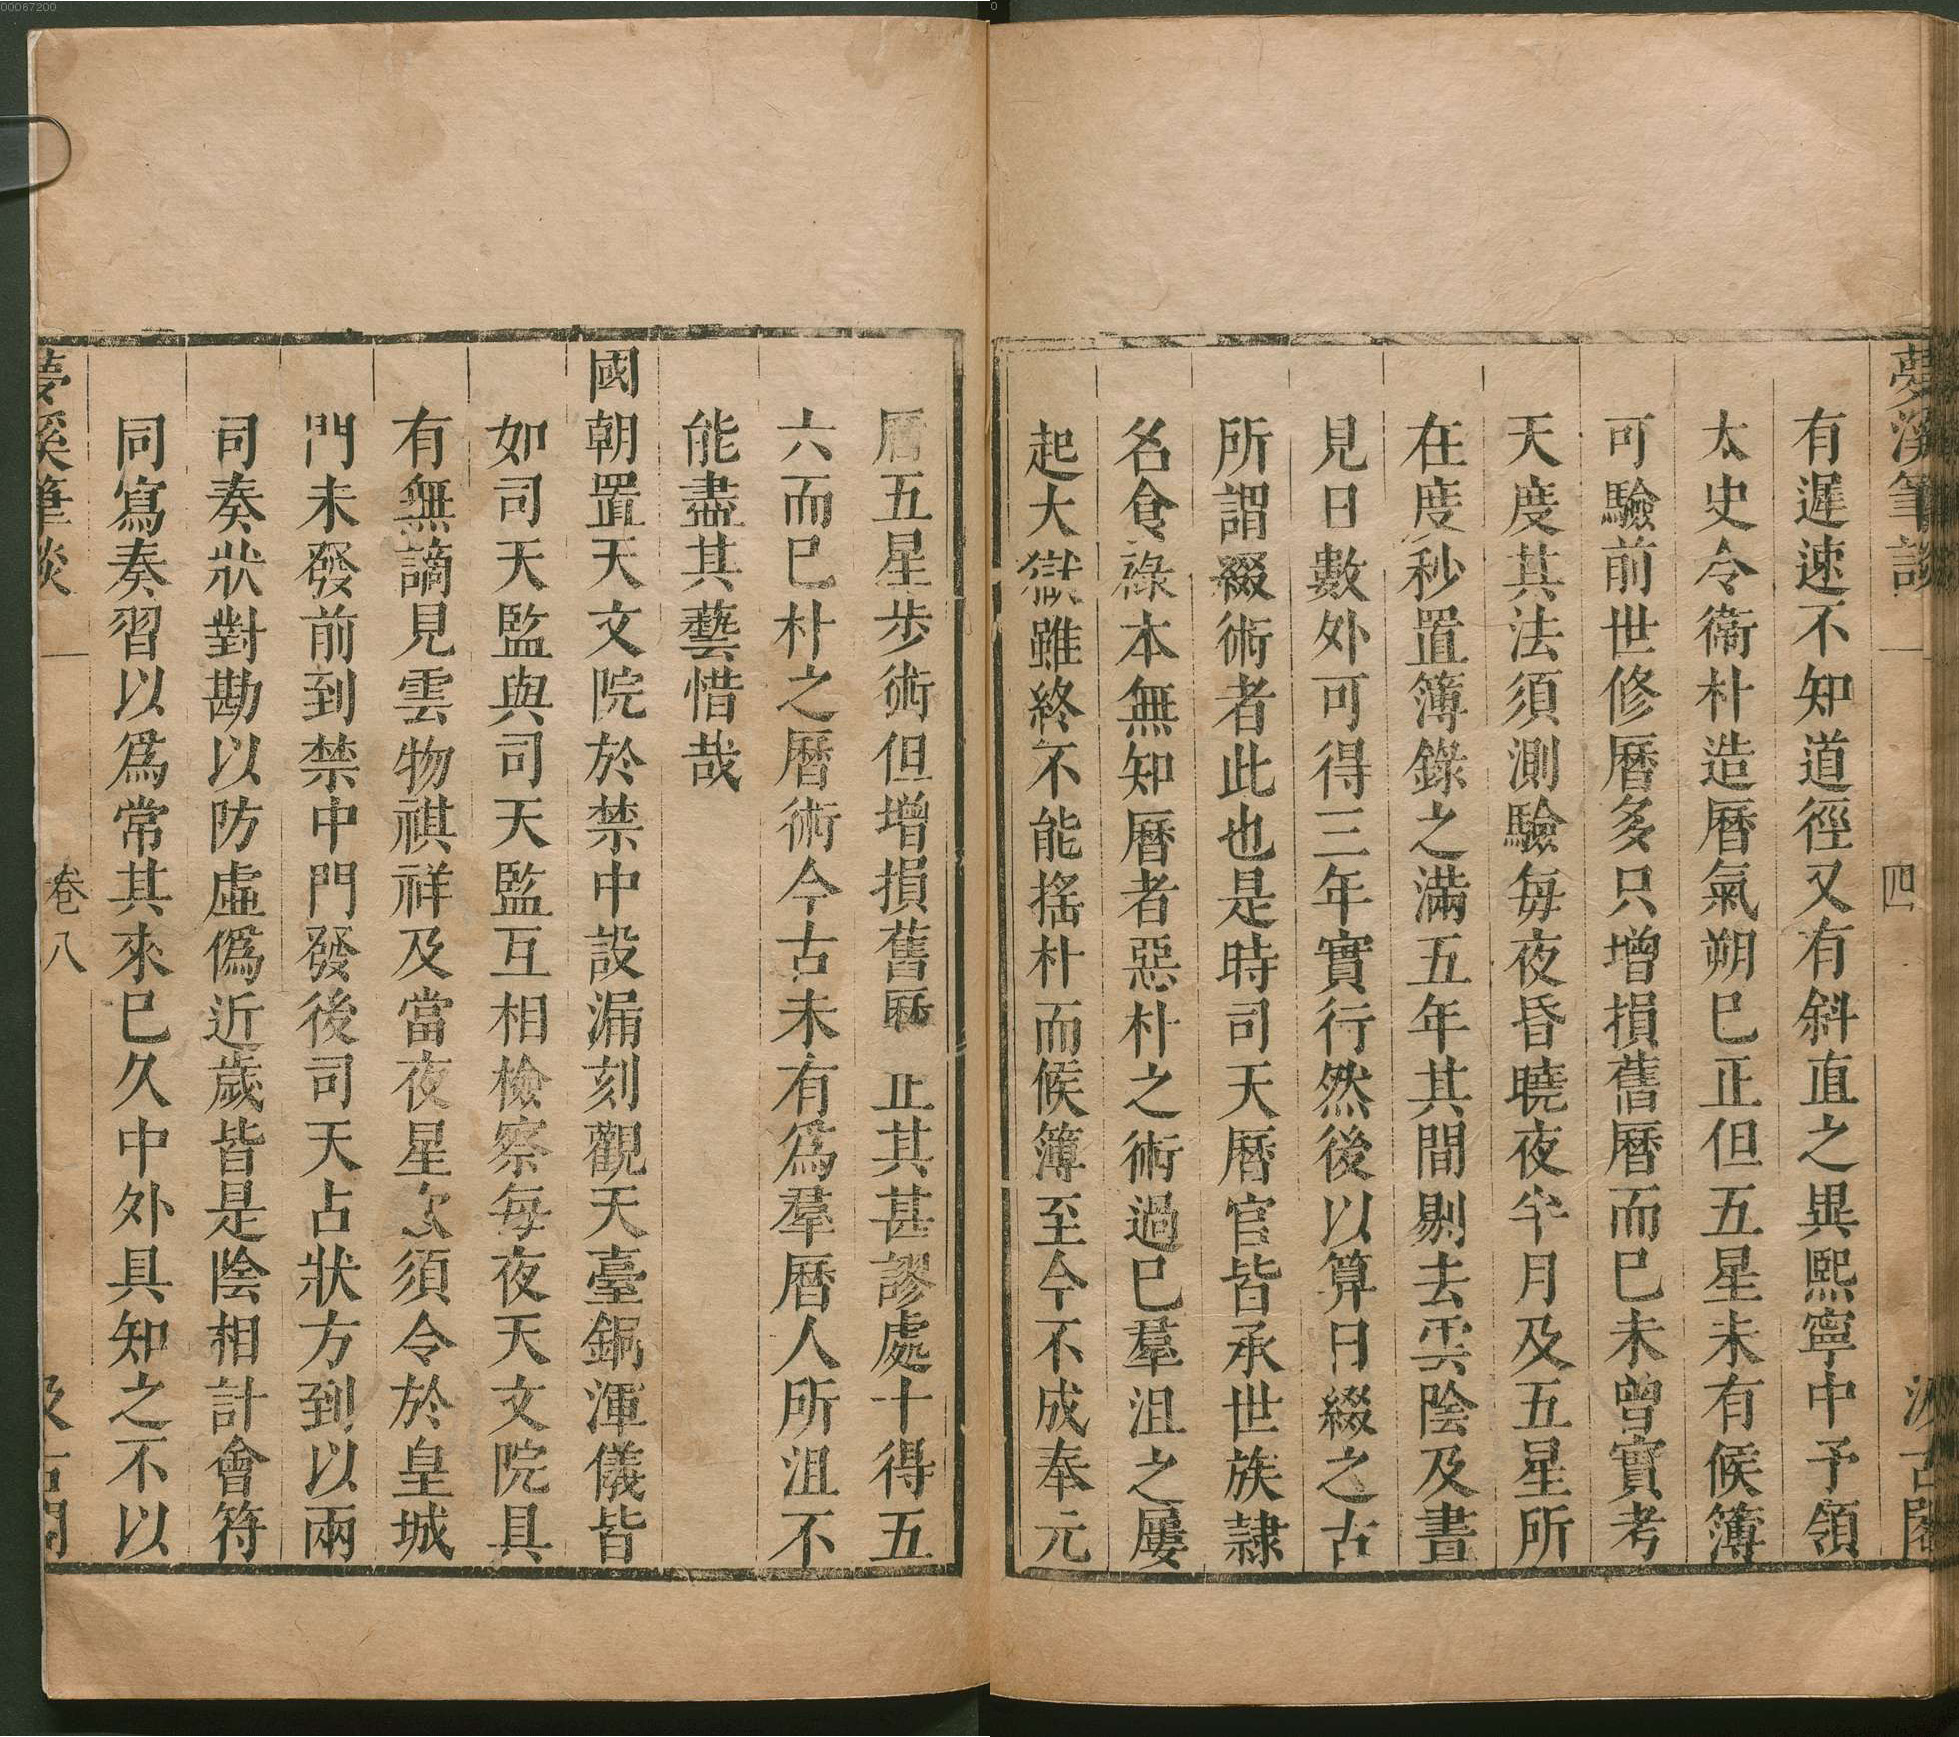 00067200
0
夢溪筆談 四 汲古閣
有遲速不知道徑又有斜直之異熙寧中予領
太史令衞朴造曆氣朔已正但五星未有候簿
可驗前世修曆多只增損舊曆而已未曾實考
天度其法須測驗每夜昏曉夜半月及五星所
在度秒置簿錄之滿五年其間剔去雲陰及晝
見日數外可得三年實行然後以算日綴之古
所謂綴術者此也是時司天曆官皆承世族隷
名食祿本無知曆者惡朴之術過已羣沮之屢
起大獄雖終不能搖朴而候簿至今不成奉元
曆五星步術但增損舊曆 正其甚謬處十得五
六而已朴之曆術今古未有爲羣曆人所沮不
能盡其藝惜哉
國朝置天文院於禁中設漏刻觀天臺銅渾儀皆
如司天監與司天監互相檢察每夜天文院具
有無謫見雲物禎祥及當夜星次須令於皇城
門未發前到禁中門發後司天占狀方到以兩
司奏狀對勘以防虛僞近歲皆是陰相計會符
同寫奏習以爲常其來已久中外具知之不以
夢溪筆談 卷八 汲古閣